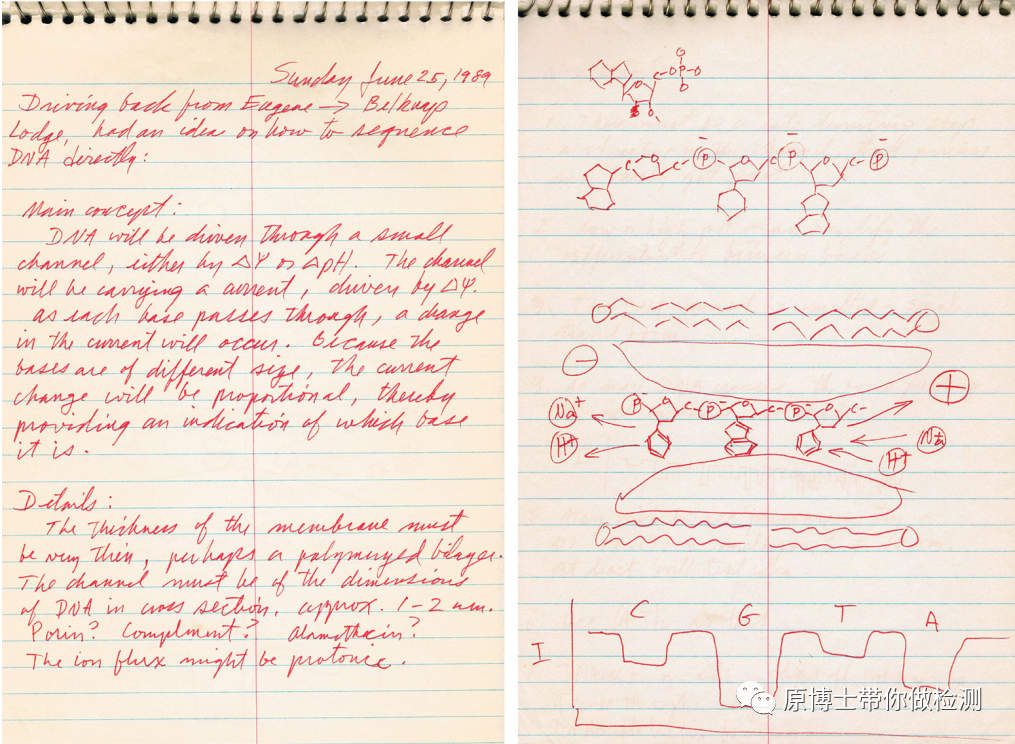 Sunday June 25, 1989
Driving back from Eugene → Belknap
Lodge, had an idea on how to sequence
DNA directly:
Main concept:
DNA will be driven through a small
channel, either by ΔΨ or ΔpH. The channel
will be carrying a current, driven by ΔΨ.
as each base passes through, a change
in the current will occur. Because the
bases are of different size, the current
change will be proportional, thereby
providing an indication of which base
it is.
Details:
The thickness of the membrane must
be very then, perhaps a polymerized bilayer.
The channel must be of the dimensions
of DNA in cross section, approx. 1-2 nm.
Porin? Compliment? Alamethicin?
The ion flux might be protonic.
O
C-O P-O
O O
O
- - -
C O C P O C P O C P
- +
P O C P O C P O C-
Na+ Na+
H+ H+
C G T A
I
原博士带你做检测